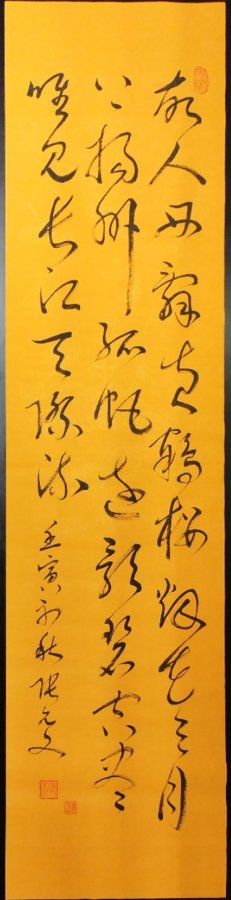 故人西辭黃鶴樓烟花三月
下揚州孤帆遠影碧空盡
唯見長江天際流
壬寅初秋張